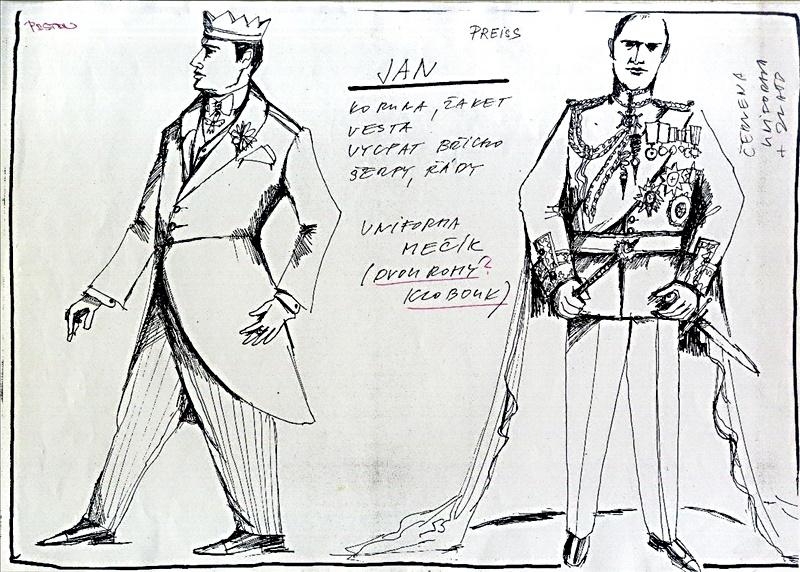 PREISS
JAN
KORUNA, ŽAKET
VESTA
VYCPAT BŘÍCHO
ŠERPY, ŘÁDY
UNIFORMA
MEČÍK
(DVOUROHÝ?
KLOBOUK)
ČERVENÁ
UNIFORMA
+ ZLATO